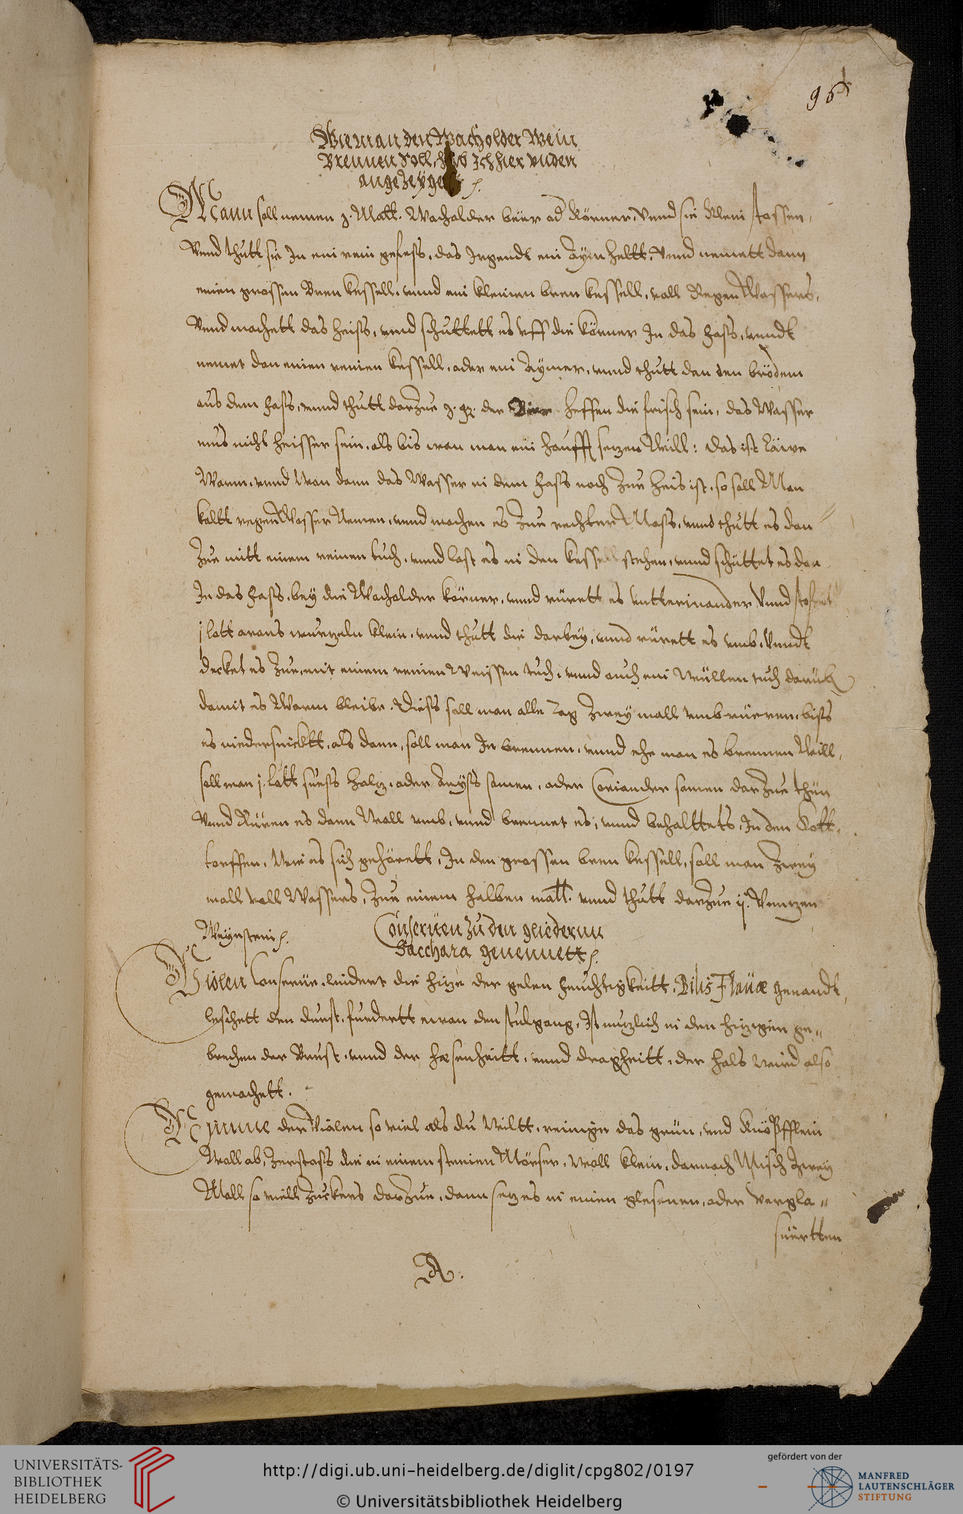 96
Wie man den Wacholder Wein
Brennen Soll, Ich hier vnden
angezeyge
Mann soll nemen 3. Mött. Wacholder beer od Körner, Vnnd sie klein stossen,
Vnnd thutt sie In ein rein gefess, das Irgendt ein Aÿm heltt, Vnnd nemett dann
einen grossen Bren kessell, vnnd ein kleinen bren kessell, voll Regen Wassers,
Vnnd machett das heiss, vnd schuttett es vff die körner In das fass, vnndt
nemet dan einen reinen kessell, oder ein Aÿmer, vnnd thutt den den brödem
aus dem fass, vnnd thutt darzue 3. der Bier heffen die frisch sein, das Wasser
mus nicht heisser sein, als bis wan man ein hauff setzen Will: das ist Läwe
Warm, vnnd Wan dann das Wasser in dem fass noch zue heis ist, so soll Man
kaltt regen Wasser Nemen, vnnd machen es zue rechter Mass, vnnd thutt es dan
zue mitt einem reinen tuch, vnnd last es in den kessell stehen, vnnd schüttet es dan
In das fass, beÿ die Wacholder körner, vnnd rürett es vntterinander Vnnd stosset
j lott arons wurtzeln klein, vnnd thutt die darbeÿ, vnnd rürett es vmb, Vnndt
decket es zue, mit einem reinen Weissen tuch, vnnd auch ein Wüllen tuch darüb
damit es Warm bleibe. Diess soll man alle tag zweÿ mall vmb rüeren, biss
es niedersincktt, als dann, soll man In brennen, vnnd ehe man es brennen Will,
soll man j. lott süess holtz, oder Aniss samen, oder Coriander samen darzue thun
Vnnd Rüren es dann Woll vmb, vnnd brennet es, vnnd behalttets, In den
Wie es sich gehörett, In den grossen bren kessell, soll man zweÿ
mall voll Wassers, zue einem halben mött. vnnd thutt darzue ij.
Weÿnstein.
Conseruen zu den gliedernn
Sacchara genennett.
Violen Conserue, lindert die hitze der gelen feuchtigkeitt, Bilis Flauæ genandt,
leschett den durst, furdertt einen den stulgang, Ist nutzlich in den hitzigen ge=
brechen der Brust, vnnd der heserheitt, vnnd des hals wird also
gemachett.
Nimme der Violen so viel als du Wiltt, reinige das grün, vnd Knöpfflein
Woll ab, zerstoss die in einem steinen Mörser, Woll klein, darnach Misch zweÿ
Moll so viell zuckers darzue, dann setz es in einen glesenen, oder vergla=
surtten
A.
UNIVERSITÄTS-
BIBLIOTHEK
HEIDELBERG
http://digi.ub.uni-heidelberg.de/diglit/cpg802/0197
© Universitätsbibliothek Heidelberg
gefördert von der
MANFRED
LAUTENSCHLÄGER
STIFTUNG